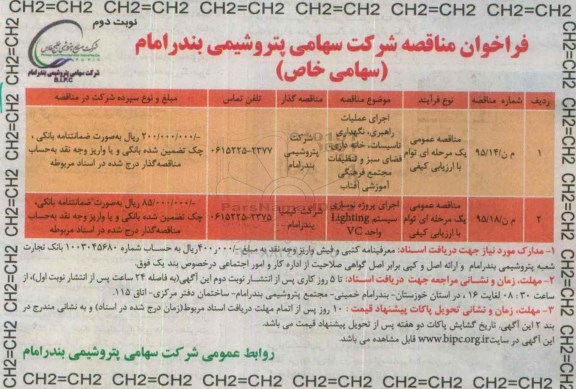 CH2=CH2 CH2=CH2 CH2=CH2 CH2=CH2 CH2=CH2 CH2=CH2 CH2=CH2
نوبت دوم
شرکت سهامی پتروشیمی بندرامام
B.I.P.C
فراخوان مناقصه شرکت سهامی پتروشیمی بندرامام
(سهامی خاص)
ردیف شماره مناقصه نوع فرآیند موضوع مناقصه مناقصه گذار تلفن تماس مبلغ و نوع سپرده شرکت در مناقصه
۱ م ن/۹۵/۱۴ مناقصه عمومی یک مرحله ای توام با ارزیابی کیفی اجرای عملیات راهبری، نگهداری تاسیسات، خانه داری، فضای سبز و تنظیفات مجتمع فرهنگی آموزشی آفتاب شرکت پتروشیمی بندرامام ۰۶۱۵۲۲۵-۲۳۷۷ -/۲۰۰/۰۰۰/۰۰۰ ریال به‌صورت ضمانتنامه بانکی، چک تضمین شده بانکی و یا واریز وجه نقد به‌حساب مناقصه‌گذار درج شده در اسناد مربوطه
۲ م ن/۹۵/۱۸ مناقصه عمومی یک مرحله ای توام با ارزیابی کیفی اجرای پروژه نوسازی سیستم Lighting واحد VC شرکت کیمیا بندرامام ۰۶۱۵۲۲۵-۲۳۷۵ -/۸۵/۰۰۰/۰۰۰ ریال به‌صورت ضمانتنامه بانکی، چک تضمین شده بانکی و یا واریز وجه نقد به‌حساب مناقصه‌گذار درج شده در اسناد مربوطه
۱- مدارک مورد نیاز جهت دریافت اسناد: معرفینامه کتبی و فیش واریز وجه نقد به مبلغ -/۴۰۰٫۰۰۰ریال به حساب شماره ۱۰۰۳۰۴۵۶۸۰ بانک تجارت
شعبه پتروشیمی بندرامام و ارائه اصل و کپی برابر اصل گواهی صلاحیت از اداره کار و امور اجتماعی درخصوص بند یک فوق.
۲- مهلت، زمان و نشانی مراجعه جهت دریافت اسناد: تا ۵ روز کاری پس از انتشار نوبت دوم این آگهی(به فاصله ۲۴ ساعت پس از انتشار نوبت اول)، از
ساعت ۸:۳۰ لغایت ۱۶، در استان خوزستان- بندرامام خمینی- مجتمع پتروشیمی بندرامام- ساختمان دفتر مرکزی- اتاق ۱۱۵.
۳- مهلت، زمان و نشانی تحویل پاکات پیشنهاد قیمت: ۱۰ روز پس از اتمام مهلت دریافت اسناد مربوط(زمان درج شده در اسناد) و به نشانی مندرج در
بند ۲ این آگهی. تاریخ گشایش پاکات دو هفته پس از تحویل پیشنهاد قیمت می باشد.
این آگهی در سایت www.bipc.org.ir قابل مشاهده می باشد.
روابط عمومی شرکت سهامی پتروشیمی بندرامام
CH2=CH2 CH2=CH2 CH2=CH2 CH2=CH2 CH2=CH2 CH2=CH2 CH2=CH2